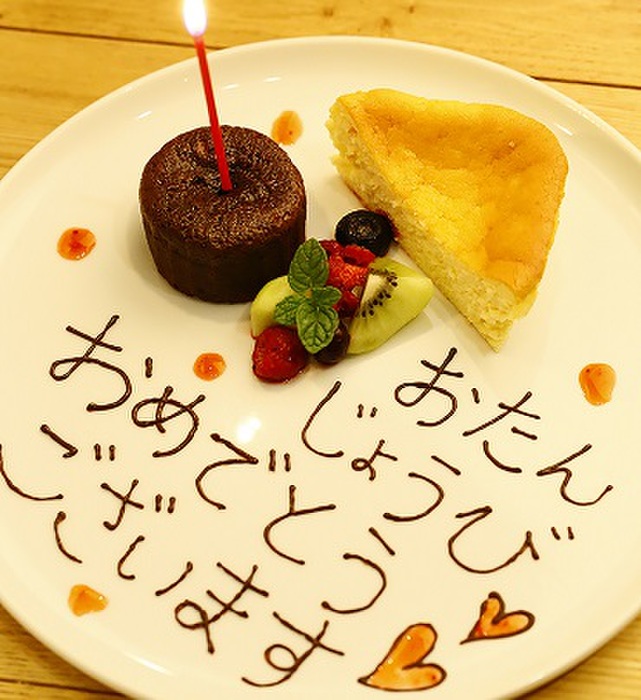 おたん
じょうび
おめでとう
ございます